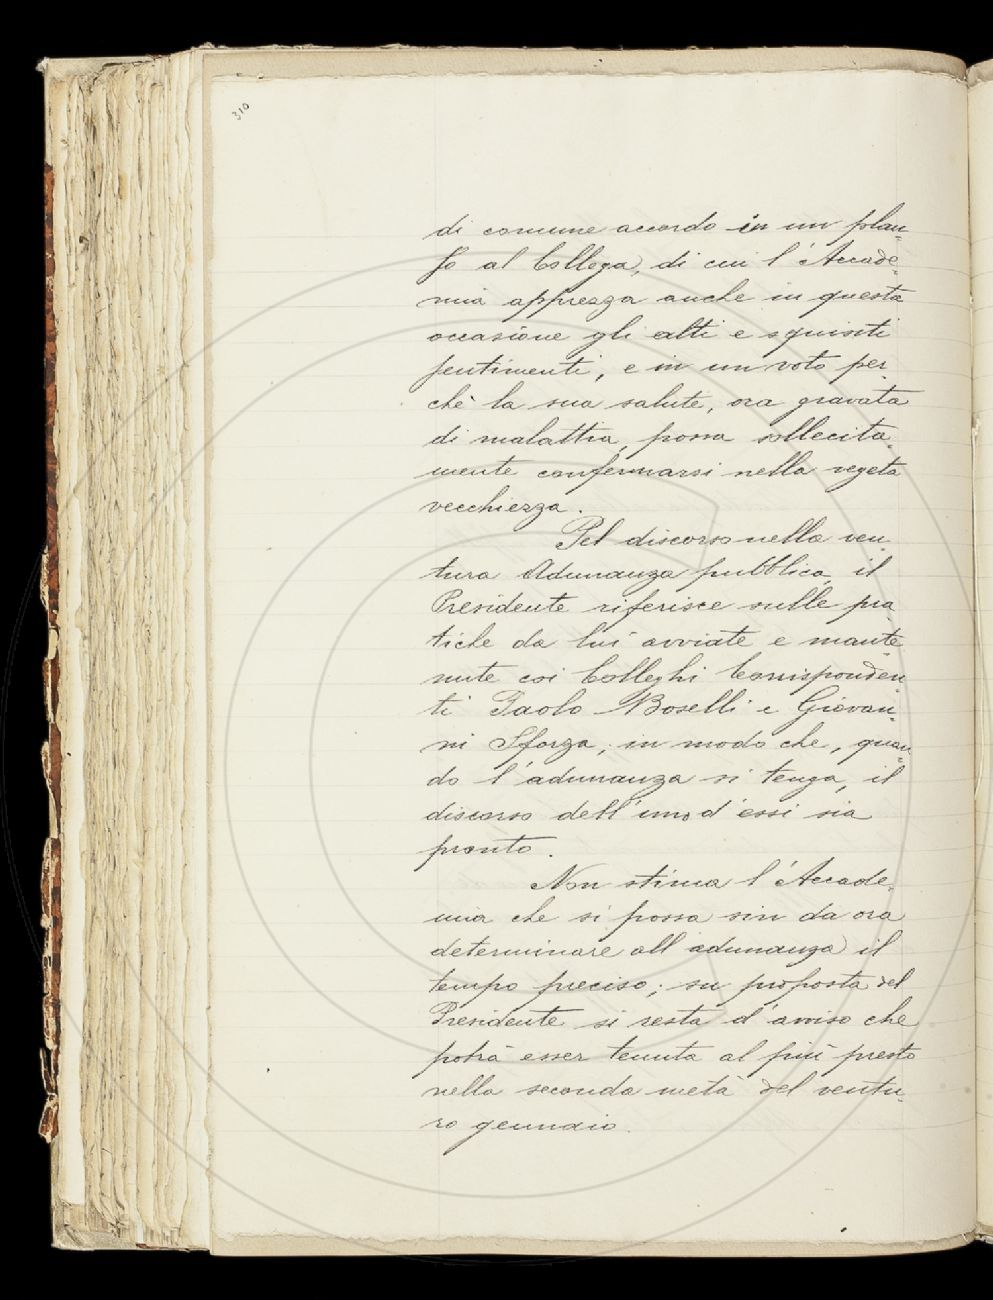 310
di comune accordo in un plau-
so al Collega, di cui l'Accade-
mia apprezza anche in questa
occasione gli alti e squisiti
sentimenti, e in un voto per-
chè la sua salute, ora gravata
di malattia, possa sollecita-
mente confermarsi nella vegeta
vecchiezza.
Pel discorso nella ven
tura Adunanza pubblica, il
Presidente riferisce sulle pra
tiche da lui avviate e mante-
nute coi Colleghi Corrisponden-
ti Paolo Boselli e Giovan-
ni Sforza; in modo che, quan-
do l'adunanza si tenga, il
discorso dell'uno d'essi sia
pronto.
Non stima l'Accade-
mia che si possa sin da ora
determinare all'adunanza il
tempo preciso; su proposta del
Presidente si resta d'avviso che
potrà esser tenuta al più presto
nella seconda metà del ventu-
ro gennaio.